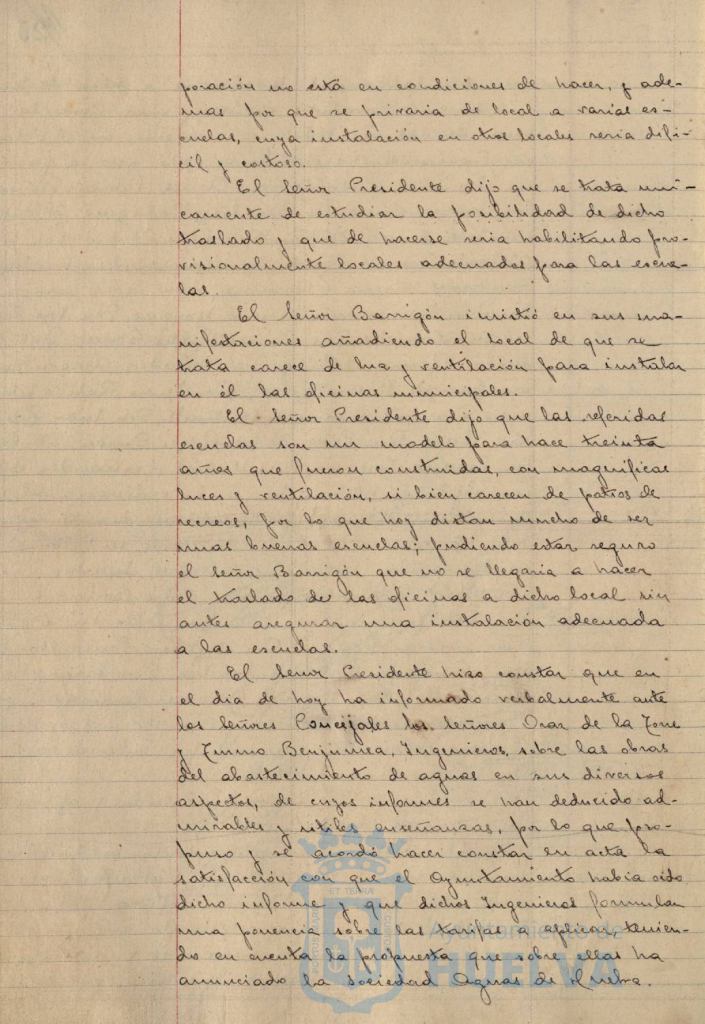 poración no está en condiciones de hacer, y ade-
mas por que se privaria de local a varias es-
cuelas, cuya instalación en otros locales seria difi-
cil y costoso.
El Señor Presidente dijo que se trata uni-
camente de estudiar la posibilidad de dicho
traslado y que de hacerse seria habilitando pro-
visionalmente locales adecuados para las escue-
las.
El Señor Barrigón insistió en sus ma-
nifestaciones añadiendo el local de que se
trata carece de luz y ventilación para instalar
en él las oficinas municipales.
El Señor Presidente dijo que las referidas
escuelas son un modelo para hace treinta
años que fueron construidas, con magnificas
luces y ventilación, si bien carecen de patios de
recreos, por lo que hoy distan mucho de ser
unas buenas escuelas; pudiendo estar seguro
el Señor Barrigón que no se llegaria a hacer
el traslado de las oficinas a dicho local sin
antes asegurar una instalación adecuada
a las escuelas.
El Señor Presidente hizo constar que en
el dia de hoy ha informado verbalmente ante
los Señores Concejales los Señores de la Torre
y Benjumea, Ingenieros, sobre las obras
del abastecimiento de aguas en sus diversos
aspectos, de cuyos informes se han deducido ad-
mirables y utiles enseñanzas, por lo que pro-
puso y se acordó hacer constar en acta la
satisfacción con que el Ayuntamiento habia oido
dicho informe y que dichos Ingenieros formulan
una ponencia sobre las tarifas a aplicar, tenien-
do en cuenta la propuesta que sobre ellas ha
anunciado la Sociedad Aguas de Huelva.
Ayuntamiento de
HUELVA